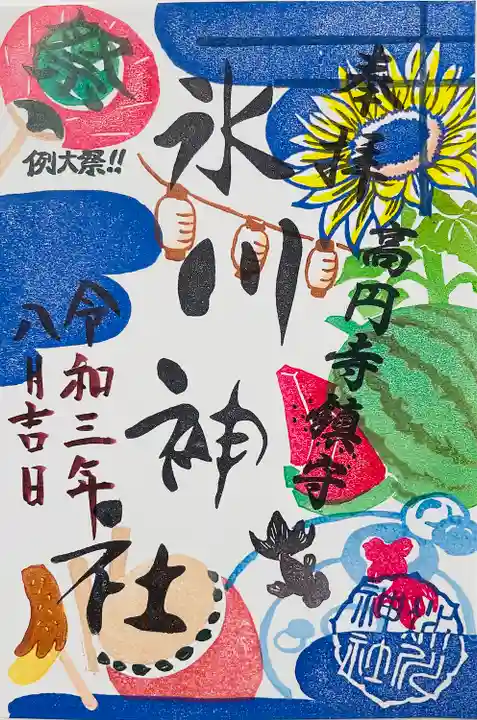 奉拝
高円寺鎮守
氷川神社
令和三年
八月吉日
祭
例大祭!!
氷川
神社